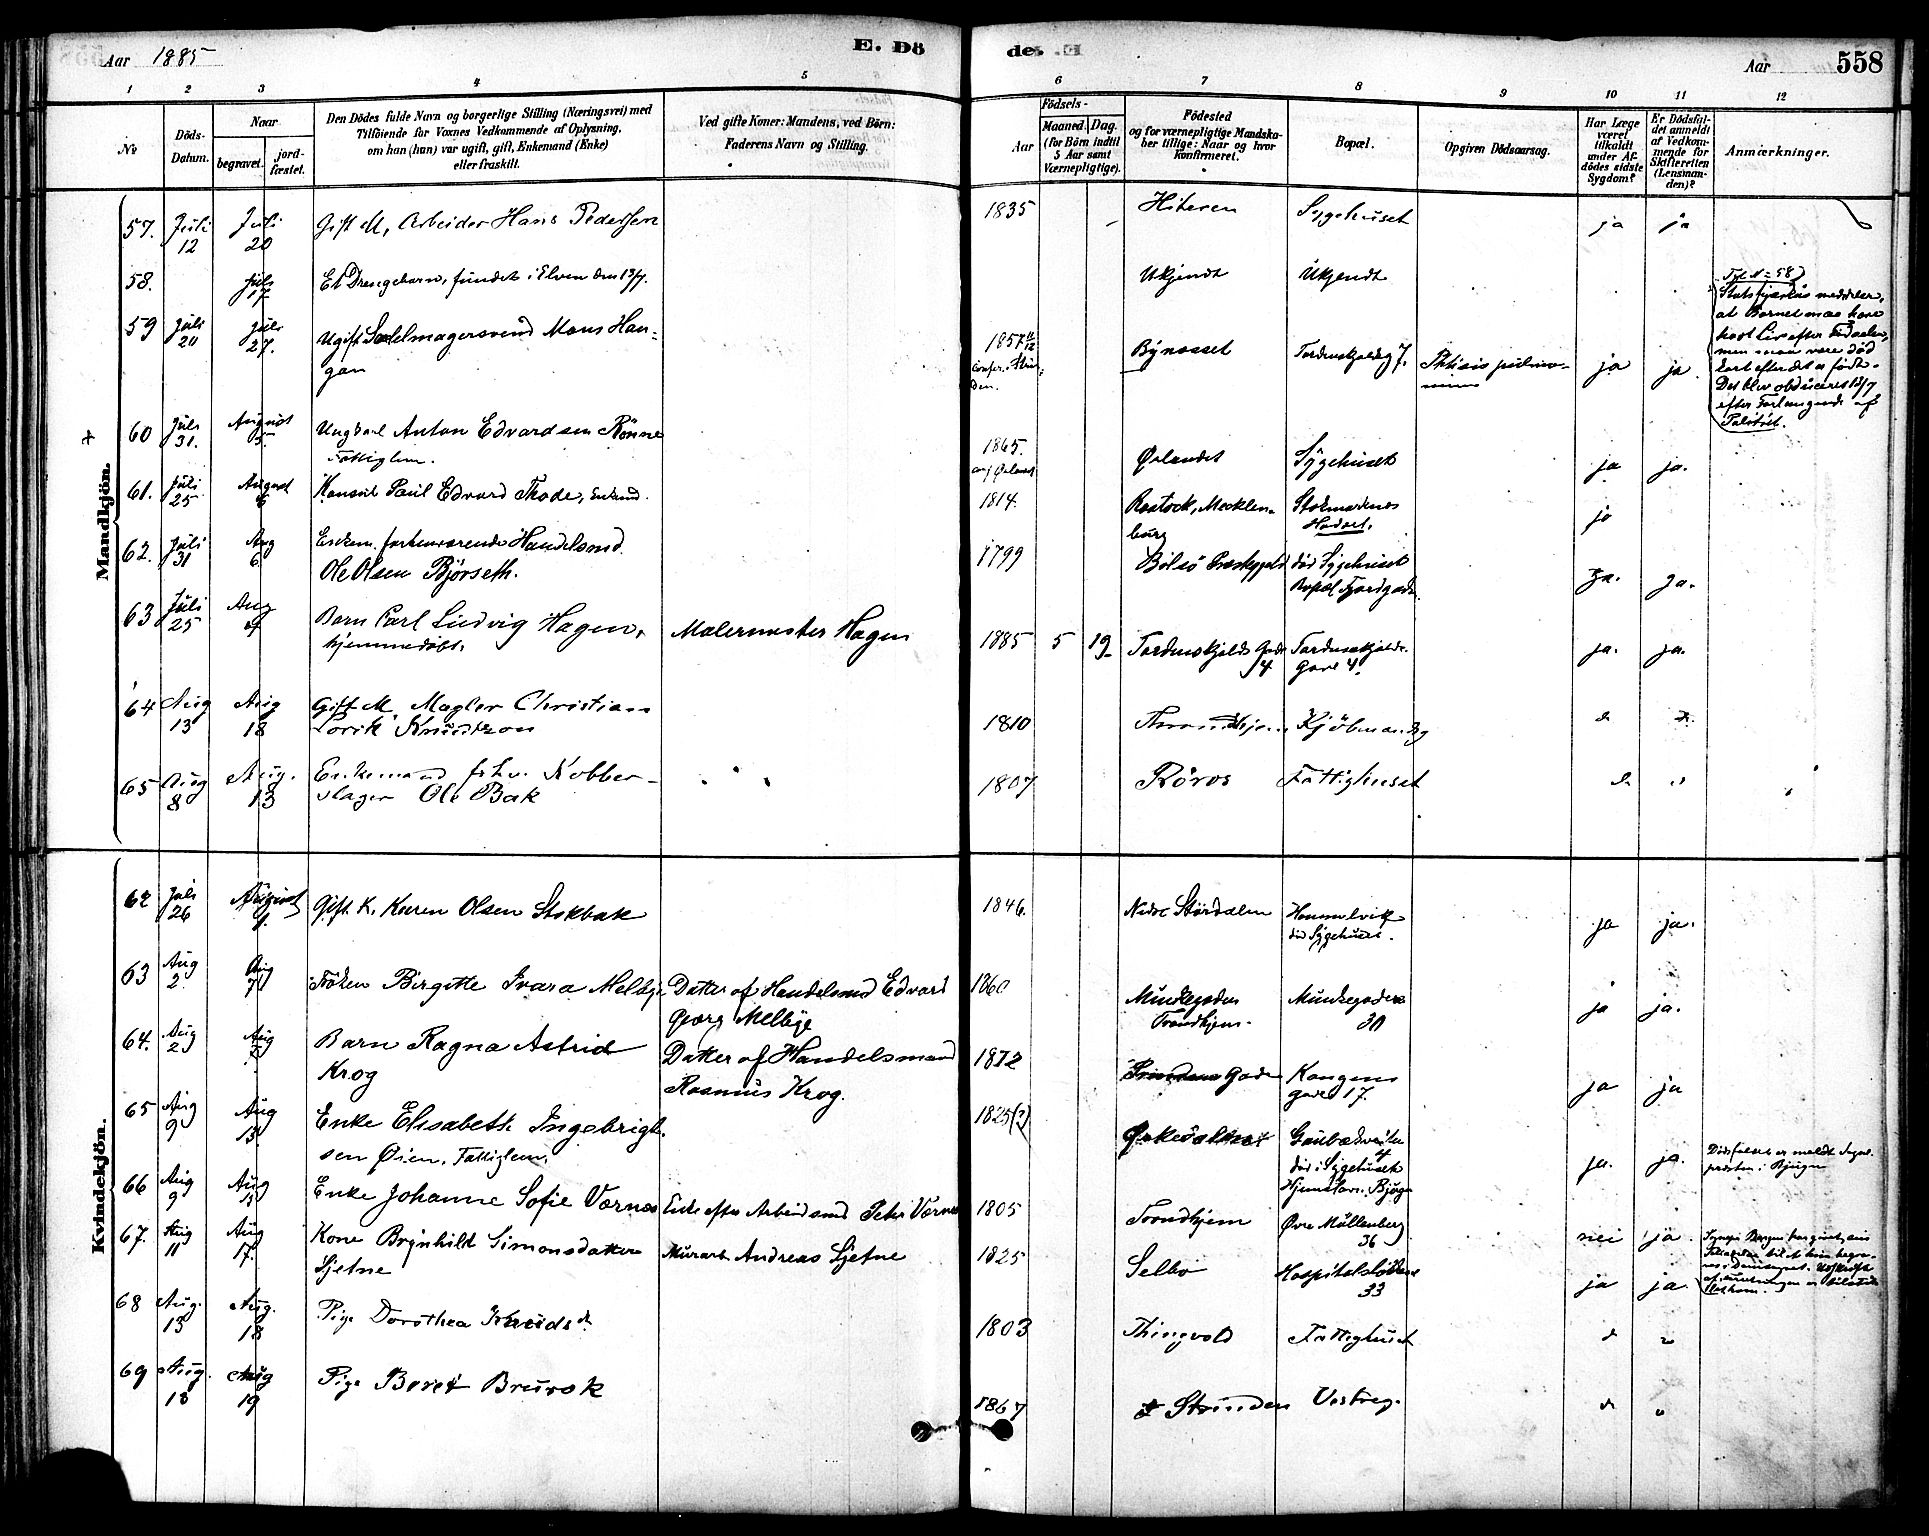 Aar 1885
E. Dö
de. E
Aar
558
1 2 3 4 5 6 7 8 9 10 11 12
No
Döds-
Datum.
Naar
begravet.
jord-
fæstet.
Den Dödes fulde Navn og borgerlige Stilling (Næringsvei) med
Tilföiende for Voxnes Vedkommende af Oplysning,
om han (hun) var ugift, gift, Enkemand (Enke)
eller fraskilt.
Ved gifte Koner: Mandens, ved Börn:
Faderens Navn og Stilling.
Födsels-
Aar
Maaned. Dag.
(for Börn indtil
5 Aar samt
Værnepligtige).
Födested
og for værnepligtige Mandska-
ber tillige: Naar og hvor
konfirmeret.
Bopæl.
Opgiven Dödsaarsag.
Har Læge
været
tilkaldt
under Af-
dödes sidste
Sygdom?
Er Dödsfal-
det anmeldt
af Vedkom-
mende for
Skifteretten
(Lensman-
den)?
Anmærkninger.
Mandkjön.
57. Juli 12 Juli 20 Gift M, Arbeider Hans Pedersen 1835 Hiteren Sygehuset ja ja
58. Juli 17 Et Drengebarn, fundet i Elven den 13/7. Ukjendt Ukjendt
Statsfysikus meddeler,
at Barnet maa have
havt Liv efter Fødselen,
men maa være død
kort efter det er født.
Det blev obduceret 18/7
efter Forlangende af
Politiet.
59 Juli 20 Juli 27. Ugift Sadelmagersvend Mons Hau-
gan 1857 Bynæsset Tordenskjoldsg 7. Phtisis pulmo-
num ja ja.
60 Juli 31. August 5. Ungkarl Anton Edvardsen Rönne
Fattiglem. 1865. Ørlandet Sygehuset ja ja.
61. Juli 25 August 6 Konsul Paul Edvard Thode, Enkemd. 1814. Rostock, Mecklen-
burg Stokmarknes
Hadsel. ja
62. Juli 31 Aug 6 Enkem. forhenværende Handelsmd.
Ole Olsen Björseth. 1799 Bolsö Præstegjeld død Sygehuset
Bopæl Fjordgaden ja. ja.
63 Juli 25 Aug Barn Carl Ludvig Hagen,
hjemmedøbt. Malermester Hagen 1885 5 19 Tordenskjolds Gade
4 Tordenskjolds
Gade 4. ja. ja.
64 Aug 13 Aug 18 Gift M. Mægler Christian
Lorik Knudtzon 1810 Throndhjem Kjöbmandsg
65 Aug 8 Aug. 13 Enkemand fhv. Kobber-
slager Ole Bak 1807 Röros Fattighuset
Kvindekjön.
62 Juli 26 August 1. Gift K. Karen Olsen Stokbak 1846. Nedre Stördalen Hommelvik
død Sygehuset. ja ja.
63 Aug 2. Aug 7 Fröken Birgitte Svara Melbye Datter af Handelsmd Edvard
Georg Melbye 1860 Munkegaden
Trondhjem. Munkegaden
30 ja ja.
64. Aug 2 Aug 7 Barn Ragna Astrid
Krog Datter af Handelsmand
Rasmus Krog. 1872 Gade Kongens
Gade 17. ja ja
65 Aug 9 Aug 13 Enke Elisabeth Ingebrigt-
sen Øien. Fattiglem. 1825(?) Orkedalen
død i Sygehuset ja. ja.
66 Aug 9 Aug Enke Johanne Sofie Værnes Enke efter Arbeidsmd Peter Værnes 1805 Trondhjem Øvre Möllenberg
36 nei ja.
67. Aug 11 Aug 17. Kone Brynhild Simonsdatter
Sjetne Murarb. Andreas Sjetne 1825 Selbo Hospitalslökken
33 ja ja
68 Aug. 13 Aug. 18 Pige Dorothea Knudsd. 1803 Thingvold Fattighuset
69 Aug. 13 Aug 19 Pige Beret Brurok 1867 Strinden Vestreg.